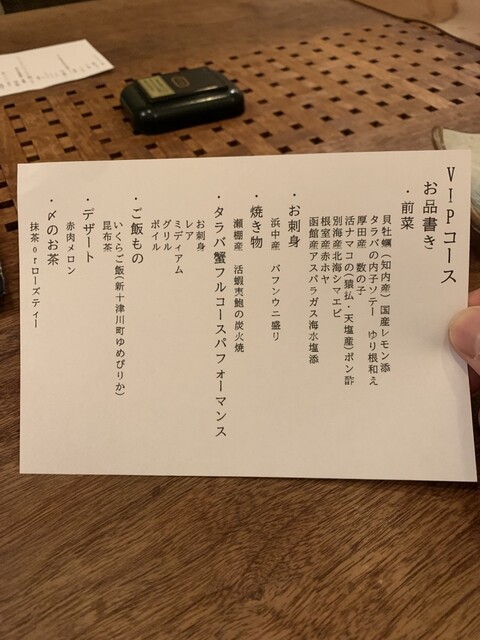 VIPコース
お品書き
・前菜
貝牡蠣(知内産)国産レモン添
タラバの内子ソテー ゆり根和え
厚田産 数の子
活ナマコの(猿払・天塩産)ポン酢
別海産北海シマエビ
根室産赤ホヤ
函館産アスパラガス海水塩添
・お刺身
浜中産 バフンウニ盛り
・焼き物
瀬棚産 活蝦夷鮑の炭火焼
・タラバ蟹フルコースパフォーマンス
お刺身
レア
ミディアム
グリル
ボイル
・ご飯もの
いくらご飯(新十津川町ゆめぴりか)
昆布茶
・デザート
赤肉メロン
・〆のお茶
抹茶orローズティー